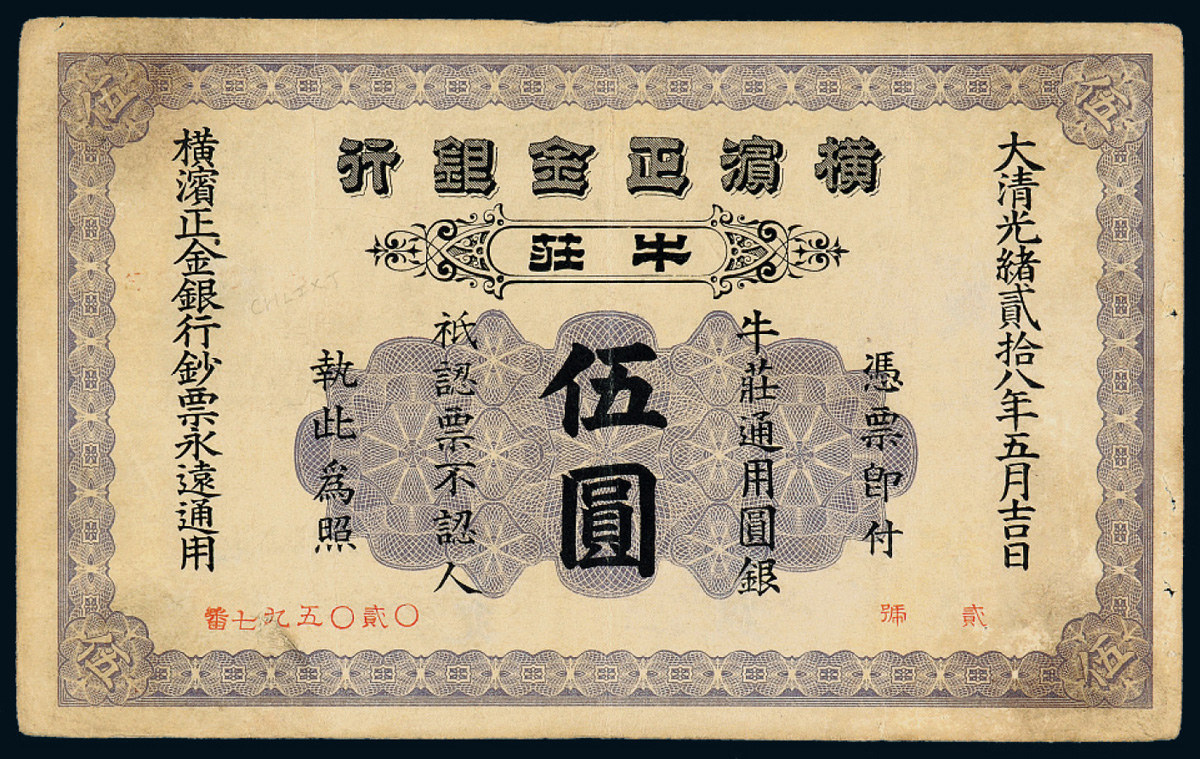 橫濵正金銀行
牛莊
大清光緒貳拾八年五月吉日
憑票即付
牛莊通用圓銀
伍圓
祇認票不認人
執此為照
橫濱正金銀行鈔票永遠通用
貳號
〇貳〇五九七番
伍
伍
伍
伍